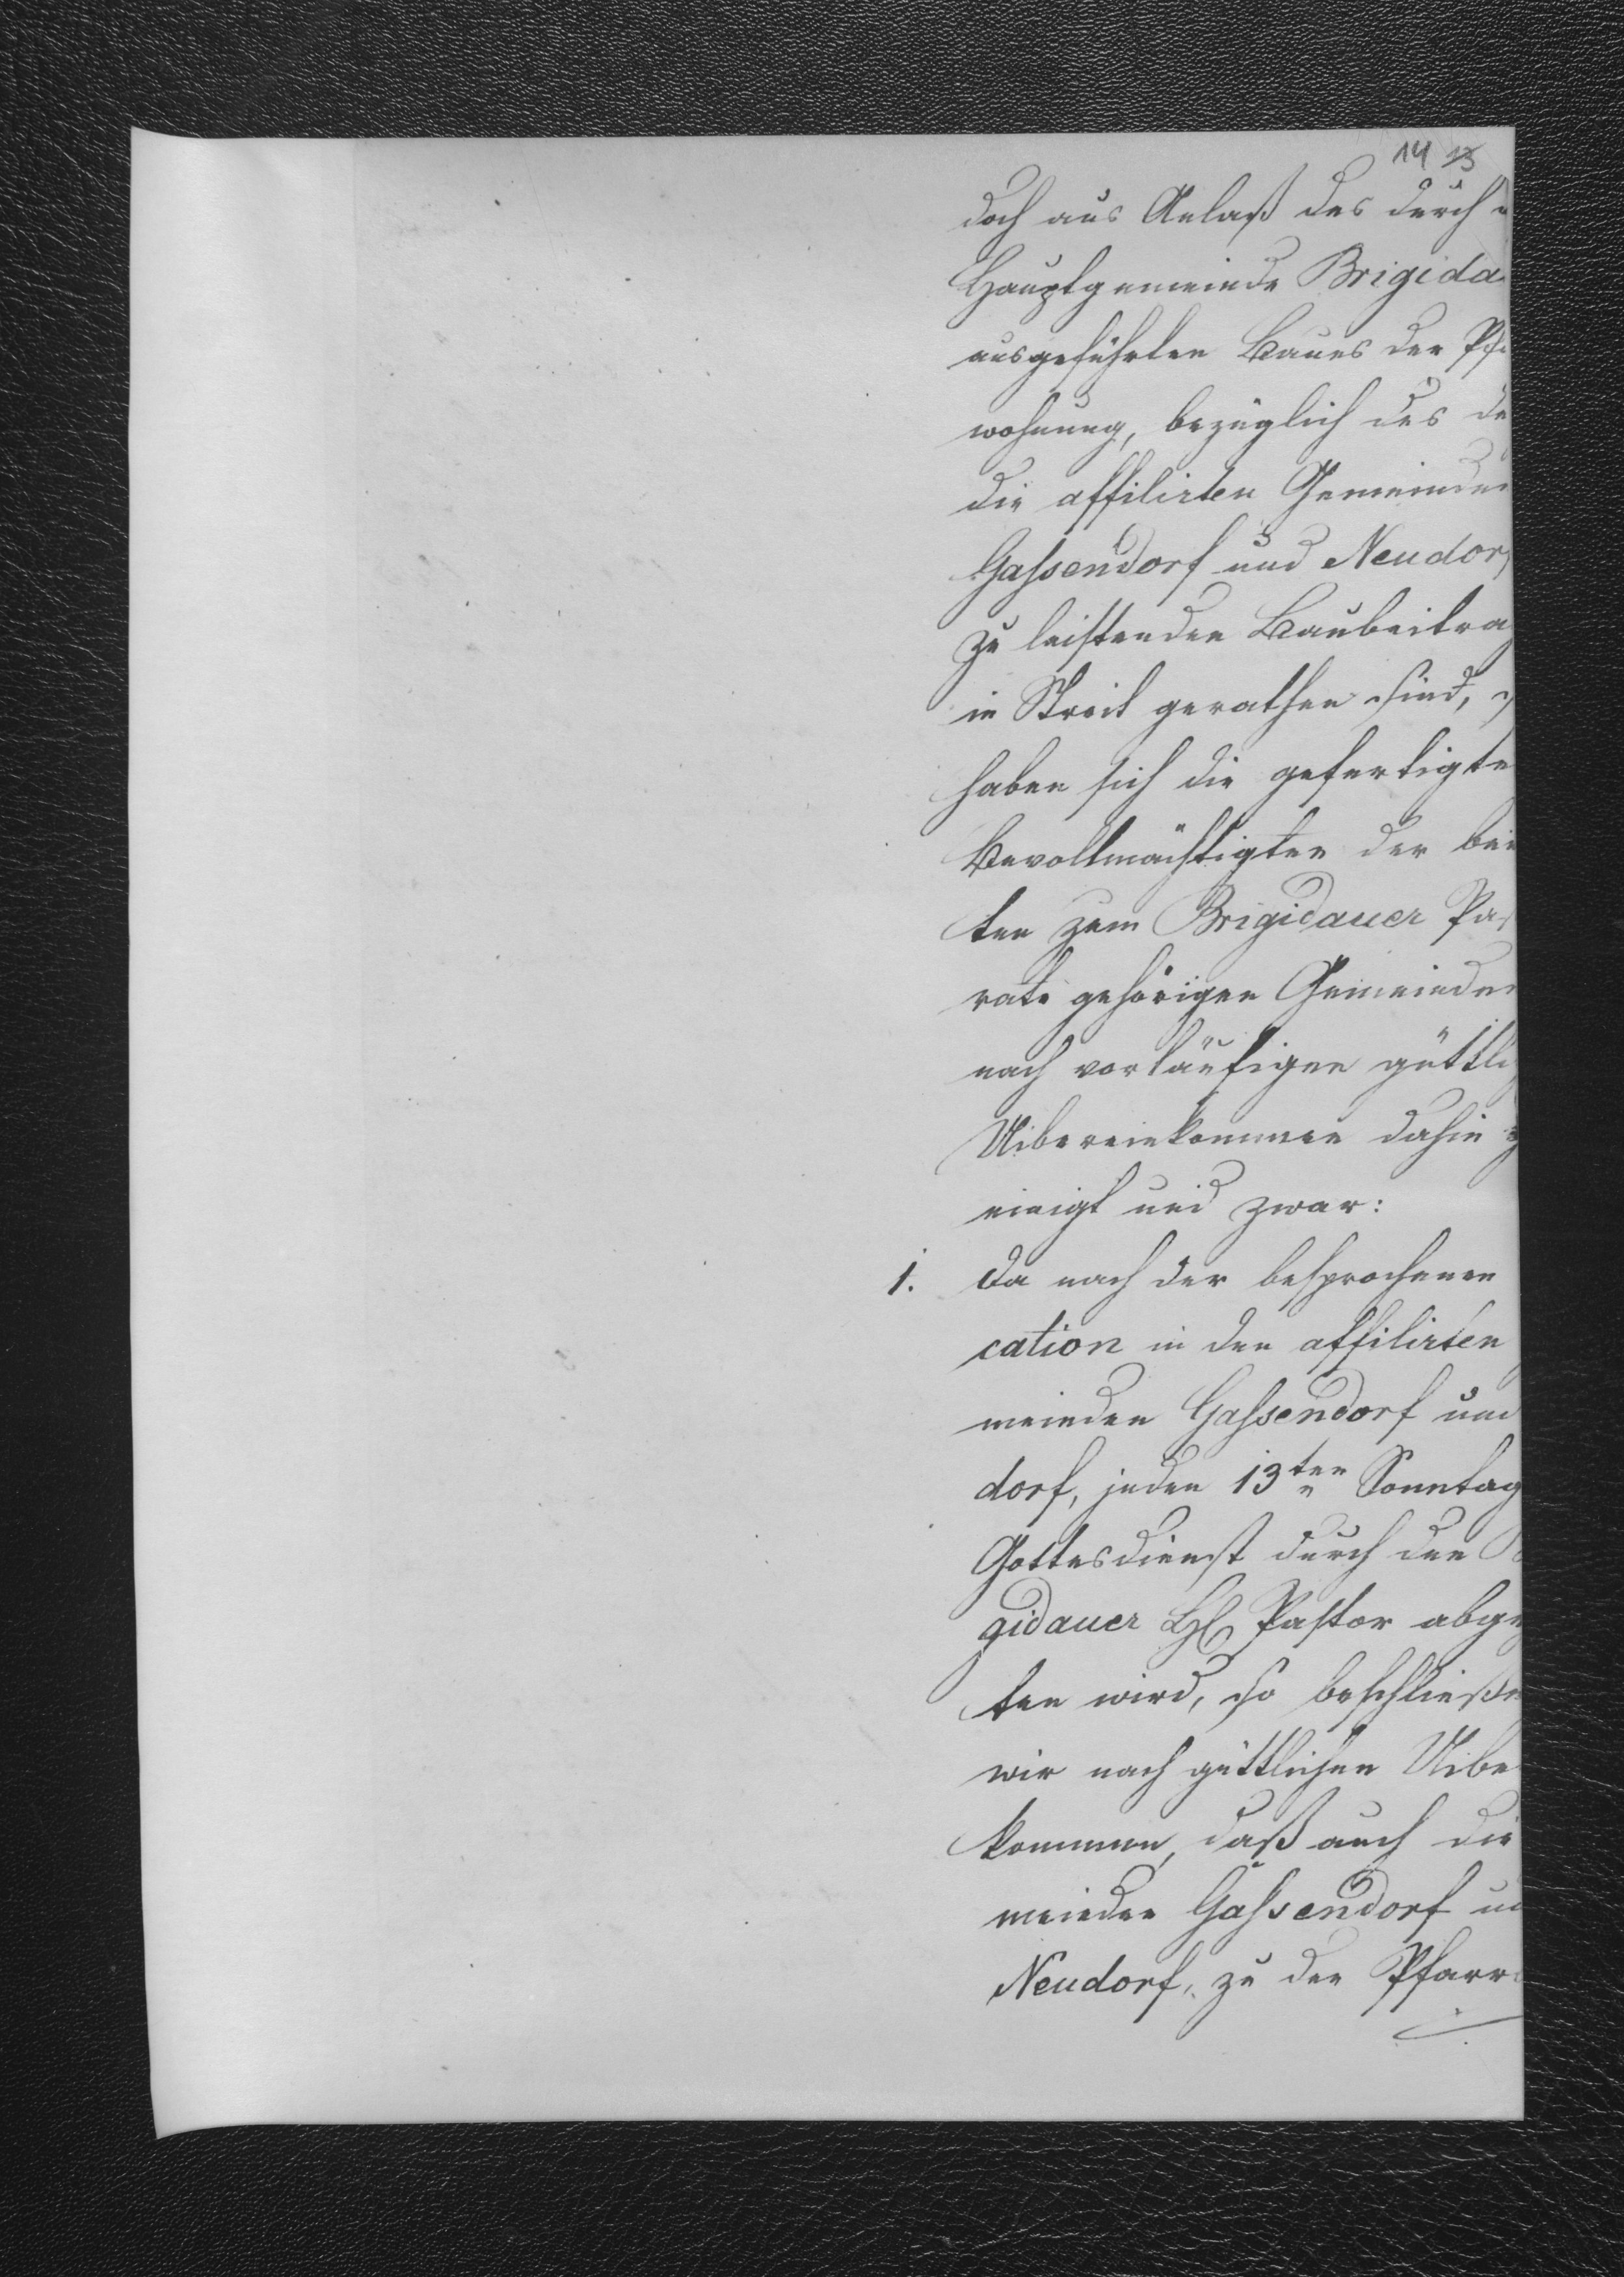 14 13
doch aus Anlaß des durch d
Hauptgemeinde Brigida
ausgeführten Baues der Pfa
wohnung, bezüglich des de
die affilirten Gemeinden
Gassendorf und Neudorf
zu leistenden Baubeitra
in Streit gerathen sind, s
haben sich die gefertigte
Bevollmächtigten der bei
ten zum Brigidauer Pas
rate gehörigen Gemeinden
nach vorläufigen güttli
Uibereinkommen dahin g
einigt und zwar:
1. Da nach der besprochenen
cation in den affilirten
meinden Gassendorf und
dorf, jeden 13ten Sonntag
Gottesdienst durch den
gidauer H. Pastor abge
ten wird, so beschließen
wir nach güttlichen Uibe
kommen, daß auch die
meinden Gassendorf un
Neudorf, zu den Pfarr